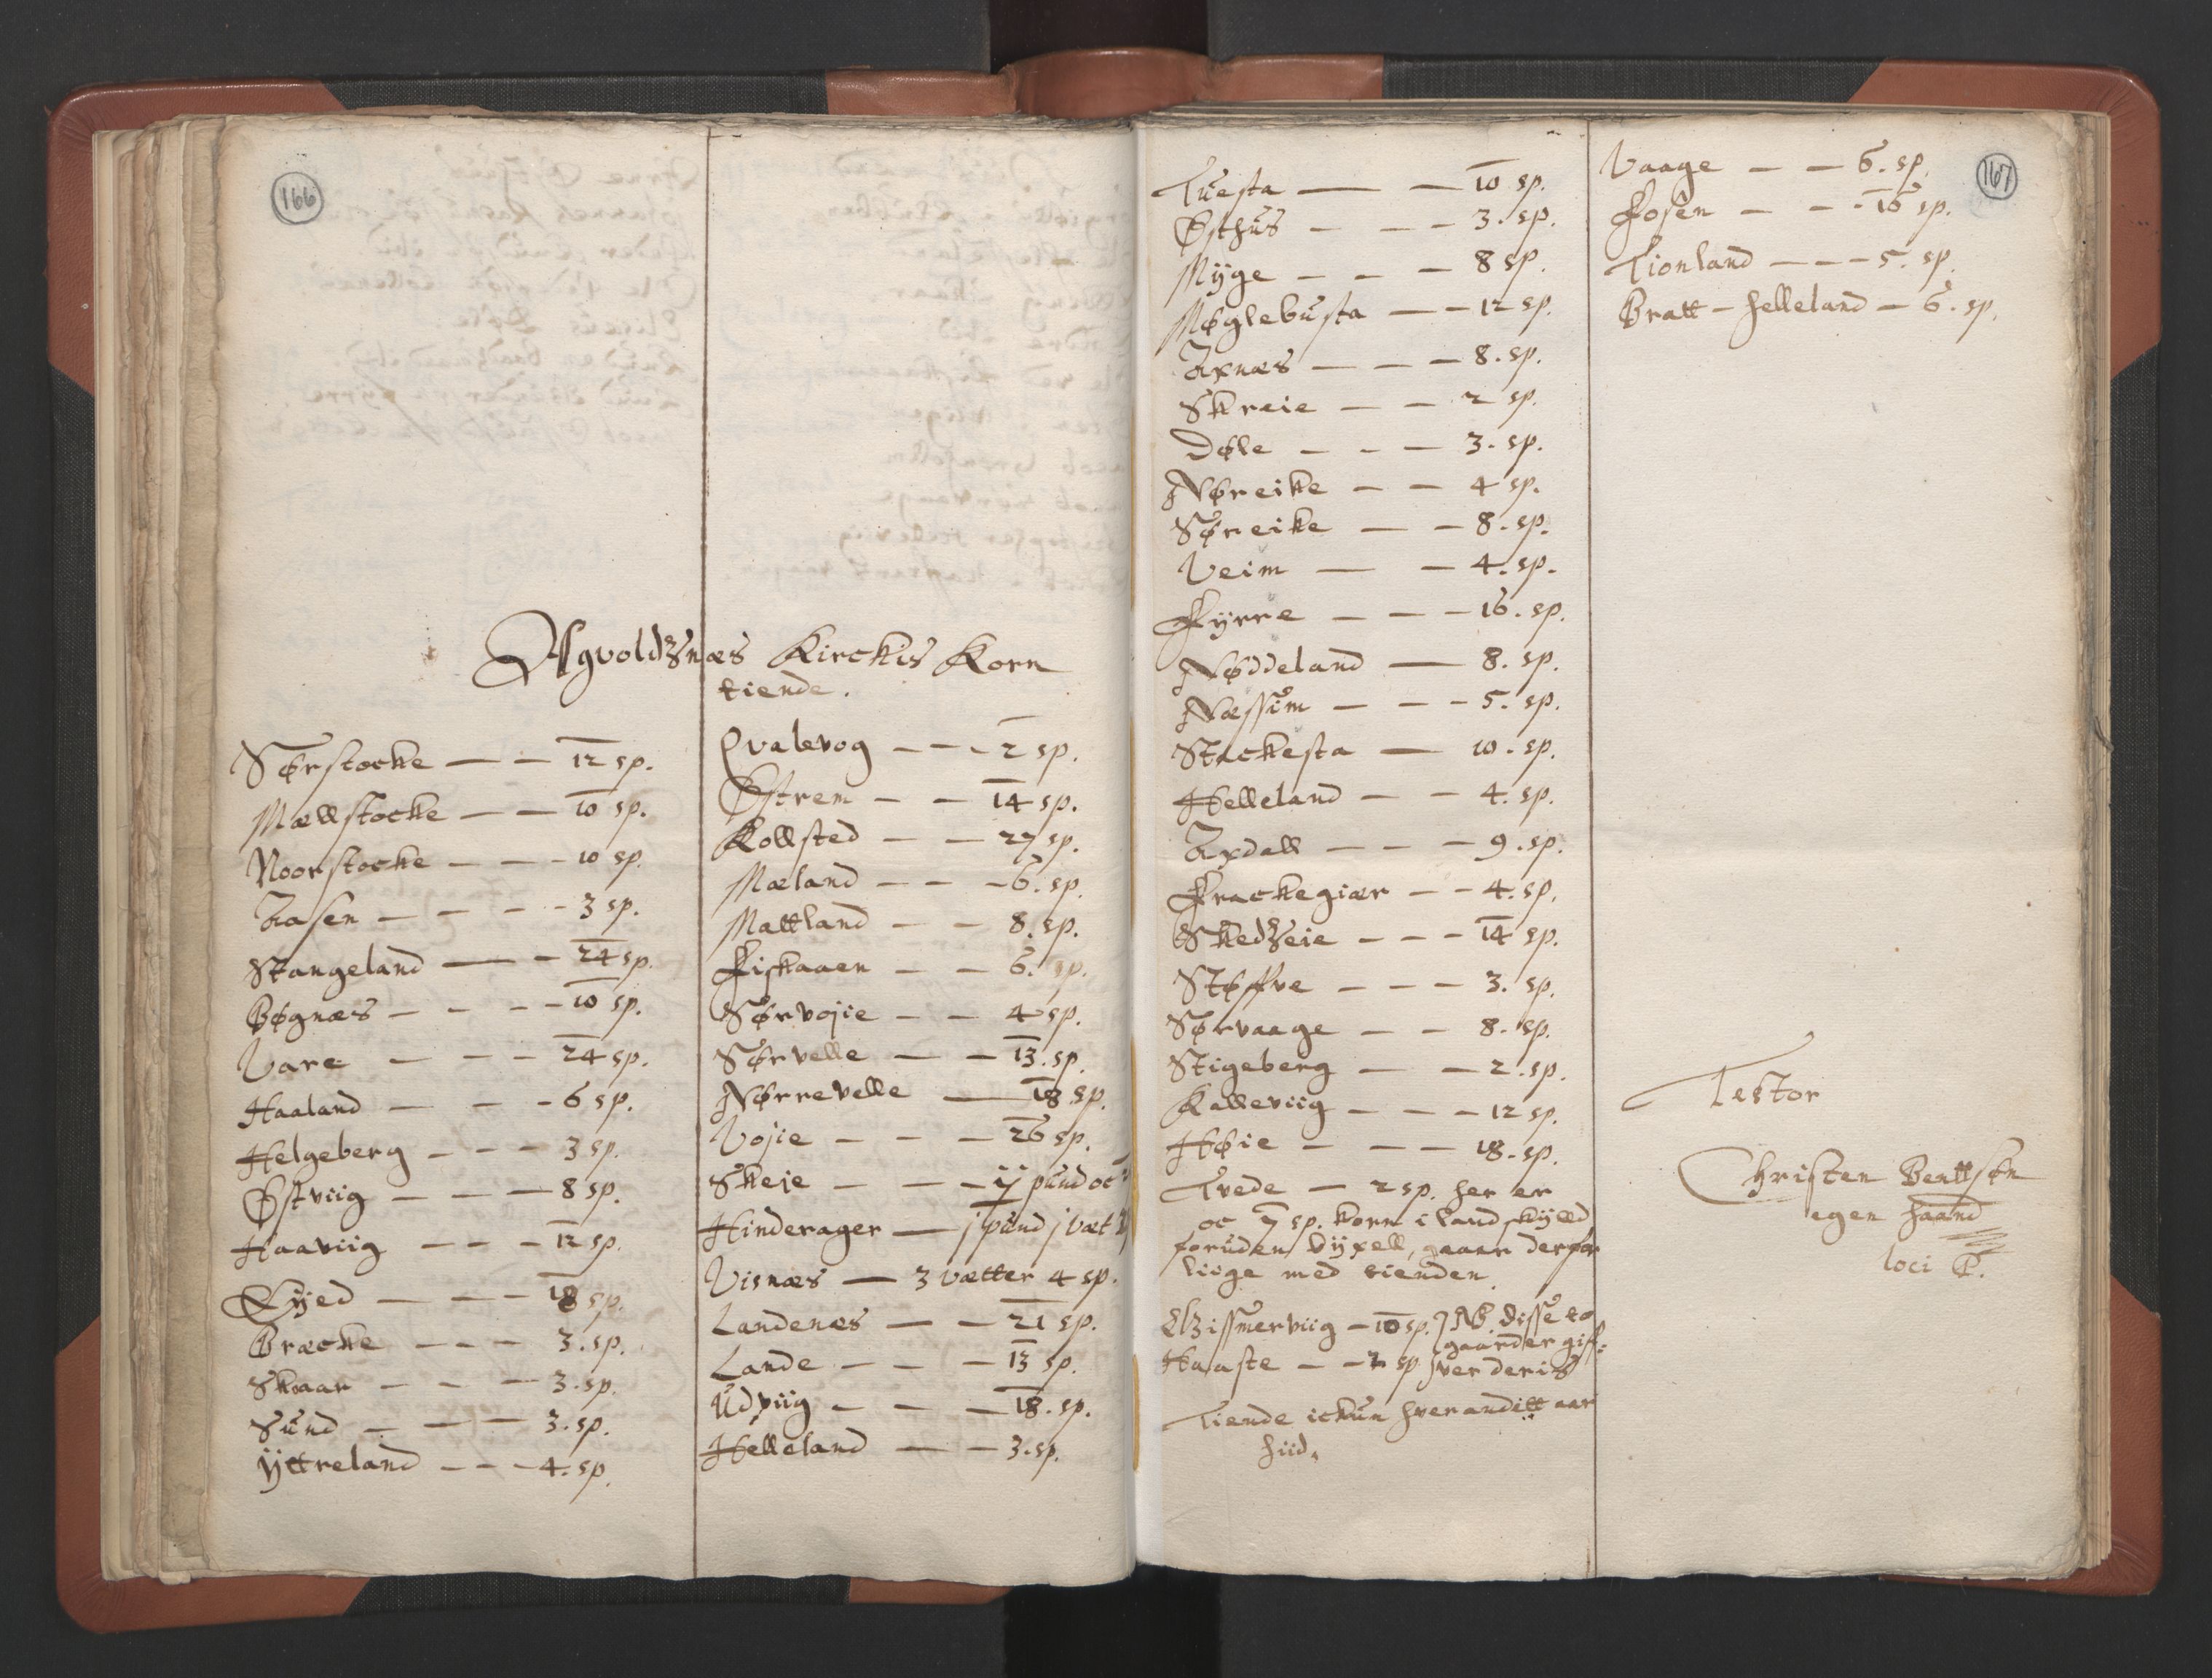 166
Agvoldznæs Kirckis Korn
tiende.
Sørstocke — — 12 sp.
Mællstocke — — 10 sp.
Noorstocke — — - 10 sp.
Aasen — — - - 3 sp.
Stangeland — - 24 sp.
Bøgnæs — - - - 10 sp.
Vare — — - 24 sp.
Haaland — - - 6 sp.
Helgeberg - - - 3 sp.
Østviig — — — 8 sp.
Haaviig — - - 12 sp.
Eyed — — - 18 sp.
Bræcke — - - 3. sp.
Skaar — - — 3. sp.
Sund — — — 3. sp.
ÿttreland — - - 4. sp.
Qvalevog — — - 2 sp.
Østrem — — 14 sp.
Kollsted — — 27 sp.
Mæland — — - 6. sp.
Mattland — — 8. sp.
Fiskaaen — — 6. sp.
Sørvojie — — 4 sp.
Sørvelle — — 13. sp.
Nørrevelle — 18 sp.
Vojie — — — 26 sp.
Skeje — — - ij pund oc
Hinderager — j pund j væt
Visnæs — 3 vætter 4 sp.
Landenes — — 21 sp.
Lande — — — 13 sp.
Udviig — — — 18. sp.
Helleland — — 3. sp.
167
Tuesta — — 10 sp.
Østhus — — - 3. sp.
Mÿge — — — 8 sp.
Møglebusta — — 12 sp.
Axnæs — — — 8. sp.
Skreie — — 2 sp.
Døle — — — 3. sp.
Nøreike — — 4 sp.
Søreike — — 8. sp.
Veim — — 4. sp.
Fÿrre — — — 16. sp.
Nøddeland — 8. sp.
Næssim — — - 5. sp.
Stackesta — 10. sp.
Helleland — — 4. sp.
Axdall — — — 9. sp.
Frackegiær — — 4. sp.
Skedzeie — — - 14 sp.
Støffve — — — 3. sp.
Sørvaage — — 8. sp.
Stigeberg — — 2. sp.
Kalleviig — — — 12 sp.
Høie — — — 18. sp.
Tvede — 2 sp. her er
oc 7 sp. korn i landskÿlld
foruden bÿxell, gaaer derfor
liige med tienden.
Elzissmerviig — 10 sp. } NB disse to
gaarder giff:
Haaste — — 2 sp } ver deris
Tiende ickun hver anditt aar
hiid.
Vaage — — 6. sp.
Fosen — — - 16 sp.
Tionland — — — 5. sp.
Bratt-helleland — 6. sp.
Testor
Christen Benttsøn
egen haand
loci P.